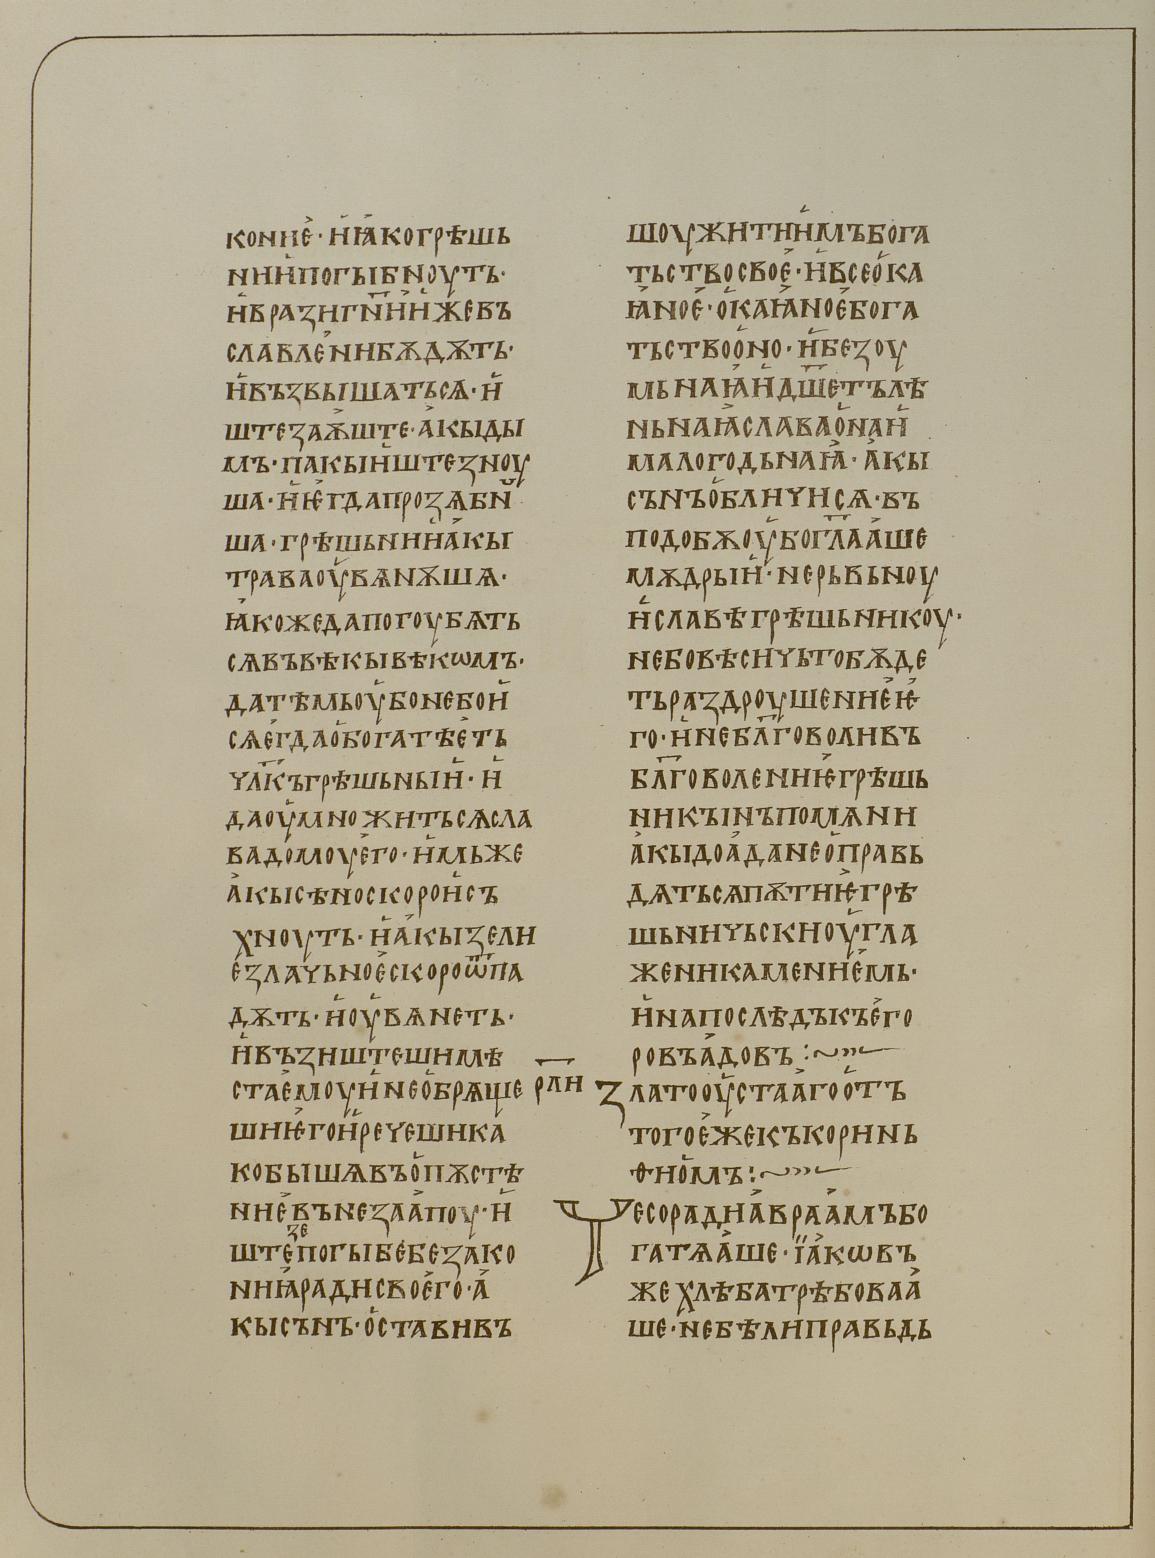 коннѐ· н҆ꙗ҆когрѣшь
ннн҆погыбноуть·
н҆вразнгн҃н҆н҆жевъ
славле҆ннбѫдѫть·
н҆въꙁвышатьсѧ· н҆
штеꙁаѫ҆ште· а҆кыды
мъ· пакын҆штеꙁноу
ша· н҆ѥ҆гдапроꙁѧбн҆
ша· грѣшьннна҆кы
траваоу҆вѧнѫшѧ·
ꙗ҆кожедапогоубѧть
сѧвъвѣкывѣкѡмъ·
датѣмьоу҆бонебон҆
сѧе҆гдао҆богатѣе҆ть
чл҃къгрѣшьнын҆· н҆
даоу҆множнтьсѧсла
вадомоуе҆го· н҆мьже
а҆кысѣноскорон҆съ
хноуть· н҆а҆кыꙁелн
е҆ꙁлачьное҆скороѿпа
дѫть· н҆оу҆вѧнеть·
н҆въꙁнштешнмѣ
стае҆моун҆нео҆брѧще
шнѥ҆гон҆речешнка
кобышѧвъо҆пѫстѣ
нне҆вънеꙁаа҆поу· н҆
ште҆погыбе҆беꙁако
ꙁе
нꙗ҆раднсвоє҆го· а҆
кысънъ· о҆ставнвъ
шоужнтнн҆мъбога
тьствосвое҆· н҆всео҆ка
ꙗ҆ное҆· о҆каꙗ҆ное҆бога
тьствоо҆но· н҆беꙁоу
мьнаꙗ҆н҆дш҃етълѣ
ньнаꙗ҆славао҆нан҆
малогодьнаꙗ҆· а҆кы
сънъо҆блнчнсѧ· въ
подобѫоу҆богл҃аа҆ше
мѫдрын҆· нерьвьноу
н҆славѣгрѣшьннкоу·
небовѣснчьтобѫде
тьраꙁдроушенне҆ѥ҆
го· н҆небл҃говолнвъ
бл҃говоленнѥ҆грѣшь
ннкъінъпомѧнн
а҆кыдоа҆данео҆правь
дѧтьсѧпѫтнѥ҆грѣ
шьннчьскноу҆гла
женнкаменне҆мь·
н҆напослѣдъкъе҆го
ровъа҆довъ :~”~
рл҃н ꙁлатооу҆стаа҆гоо҆тъ
тогое҆жекъкорннь
ѳно҆мъ :~”~
чесорадна҆враа҆мъбо
гатѧа҆ше· їа҆кѡвъ
же хлѣбатрѣбоваа҆
ше· небѣлнправьдь